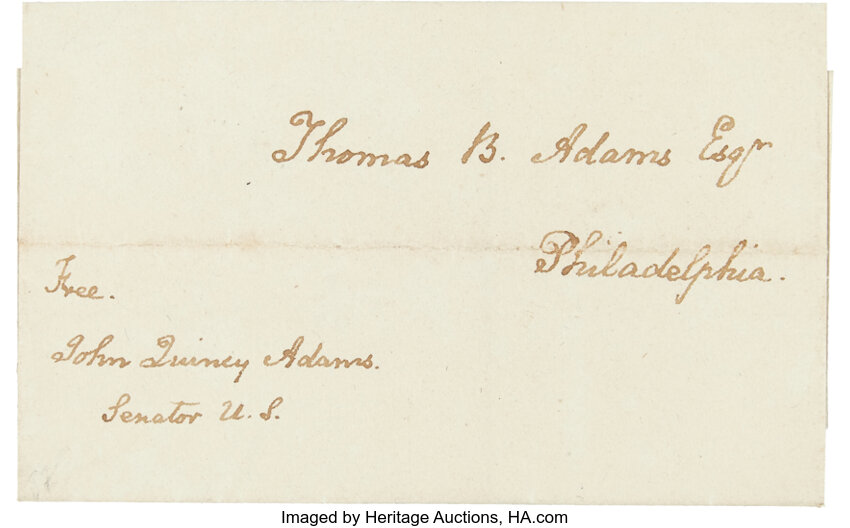 Thomas B. Adams Esqr
Philadelphia.
Free.
John Quincy Adams.
Senator U.S.
Imaged by Heritage Auctions, HA.com